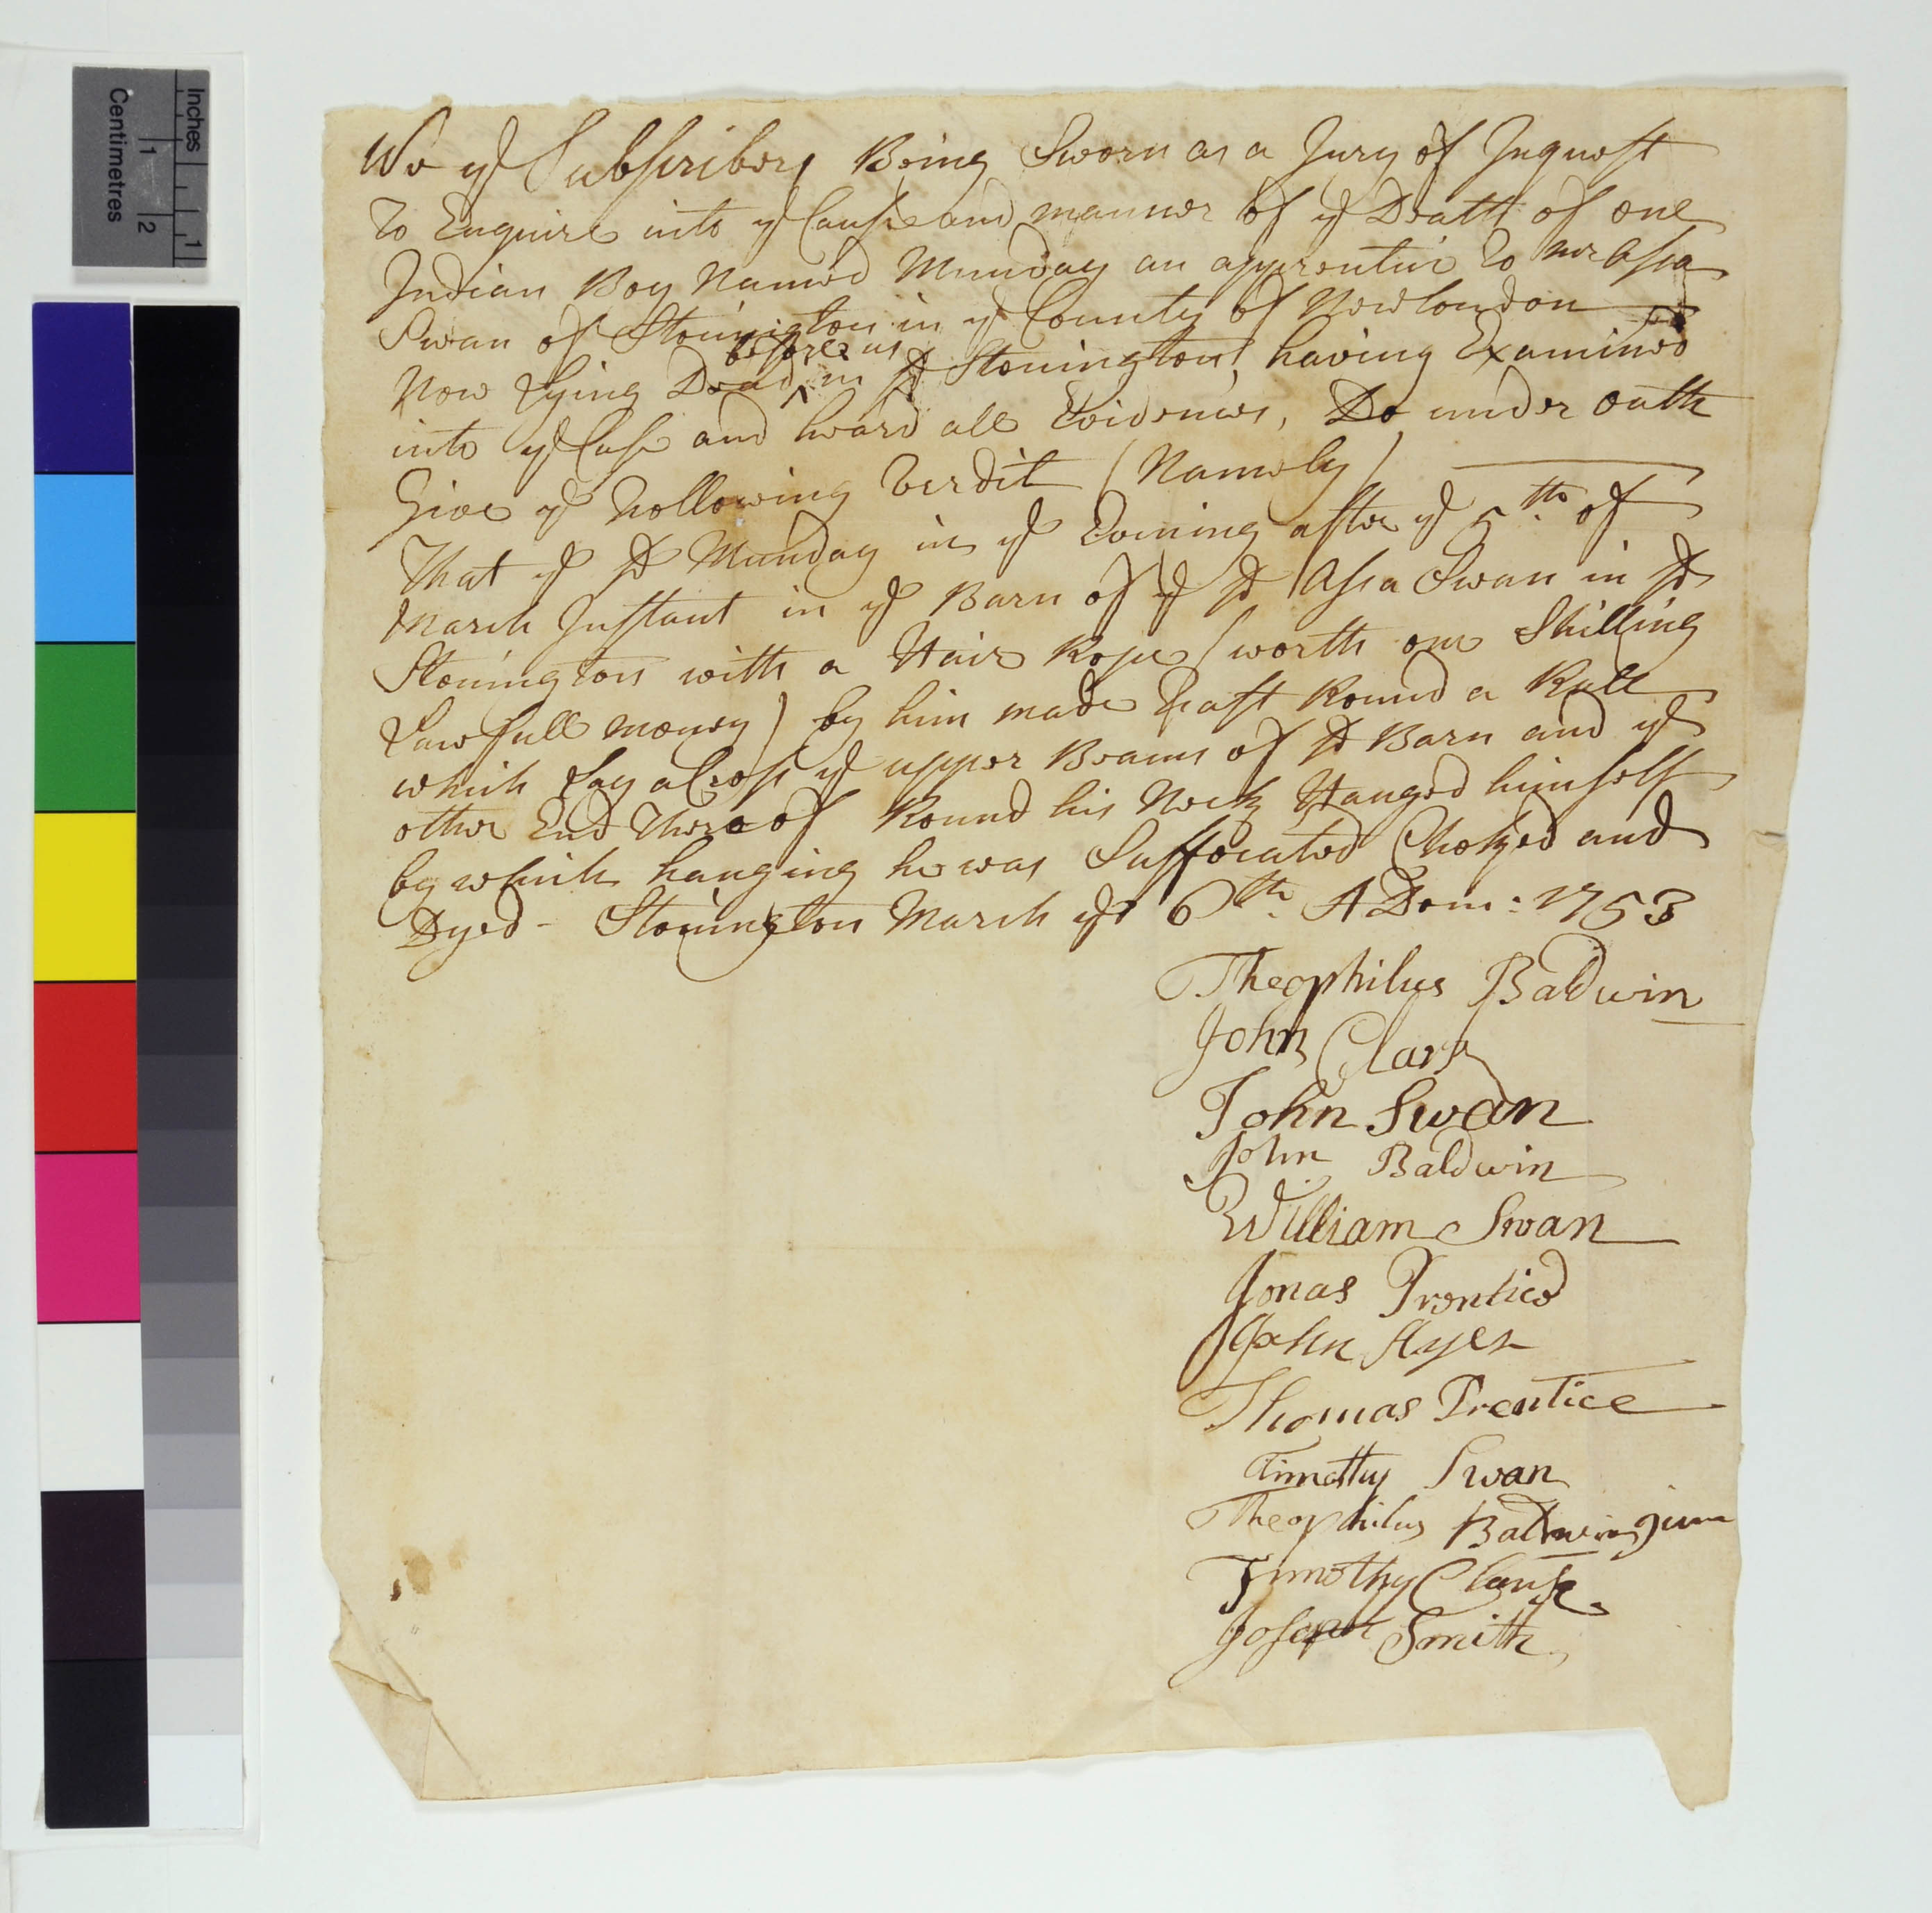 Inches
1
Centimetres
1
2
We ye Subscribers Being Sworn as a Jury of Inquest
To Enquire into ye Cause and manner of ye Death of one
Indian Boy Named Munday an apprentice To mr Asa
Swan of Stonington in ye County of New london
before us
Now Lying Dead ^ in sd Stonington, having Examined
into ye Case and heard all Evidences, Do under oath
Give ye following Verdit (Namely)
That ye sd Munday in ye Evening after ye 5th of
March Instant in ye Barn of ye sd Asa Swan in sd
Stonington with a Hair Rope (worth one Shilling
Lawfull money) by him made fast Round a Rall
which Lay aCross ye upper Beams of sd Barn and ye
other End Thereof Round his Neck Hanged himself
by which hanging he was Suffocated Choked and
Dyed - Stonington March ye 6th. A Dom: 1753
Theophilus Baldwin
John Clark
John Swan
John Baldwin
William Swan
Jonas Prentice
John Ayer
Thomas Prentice
Timothy Swan
Theophilus Baldwin Jun
Timothy Clark
Joseph Smith